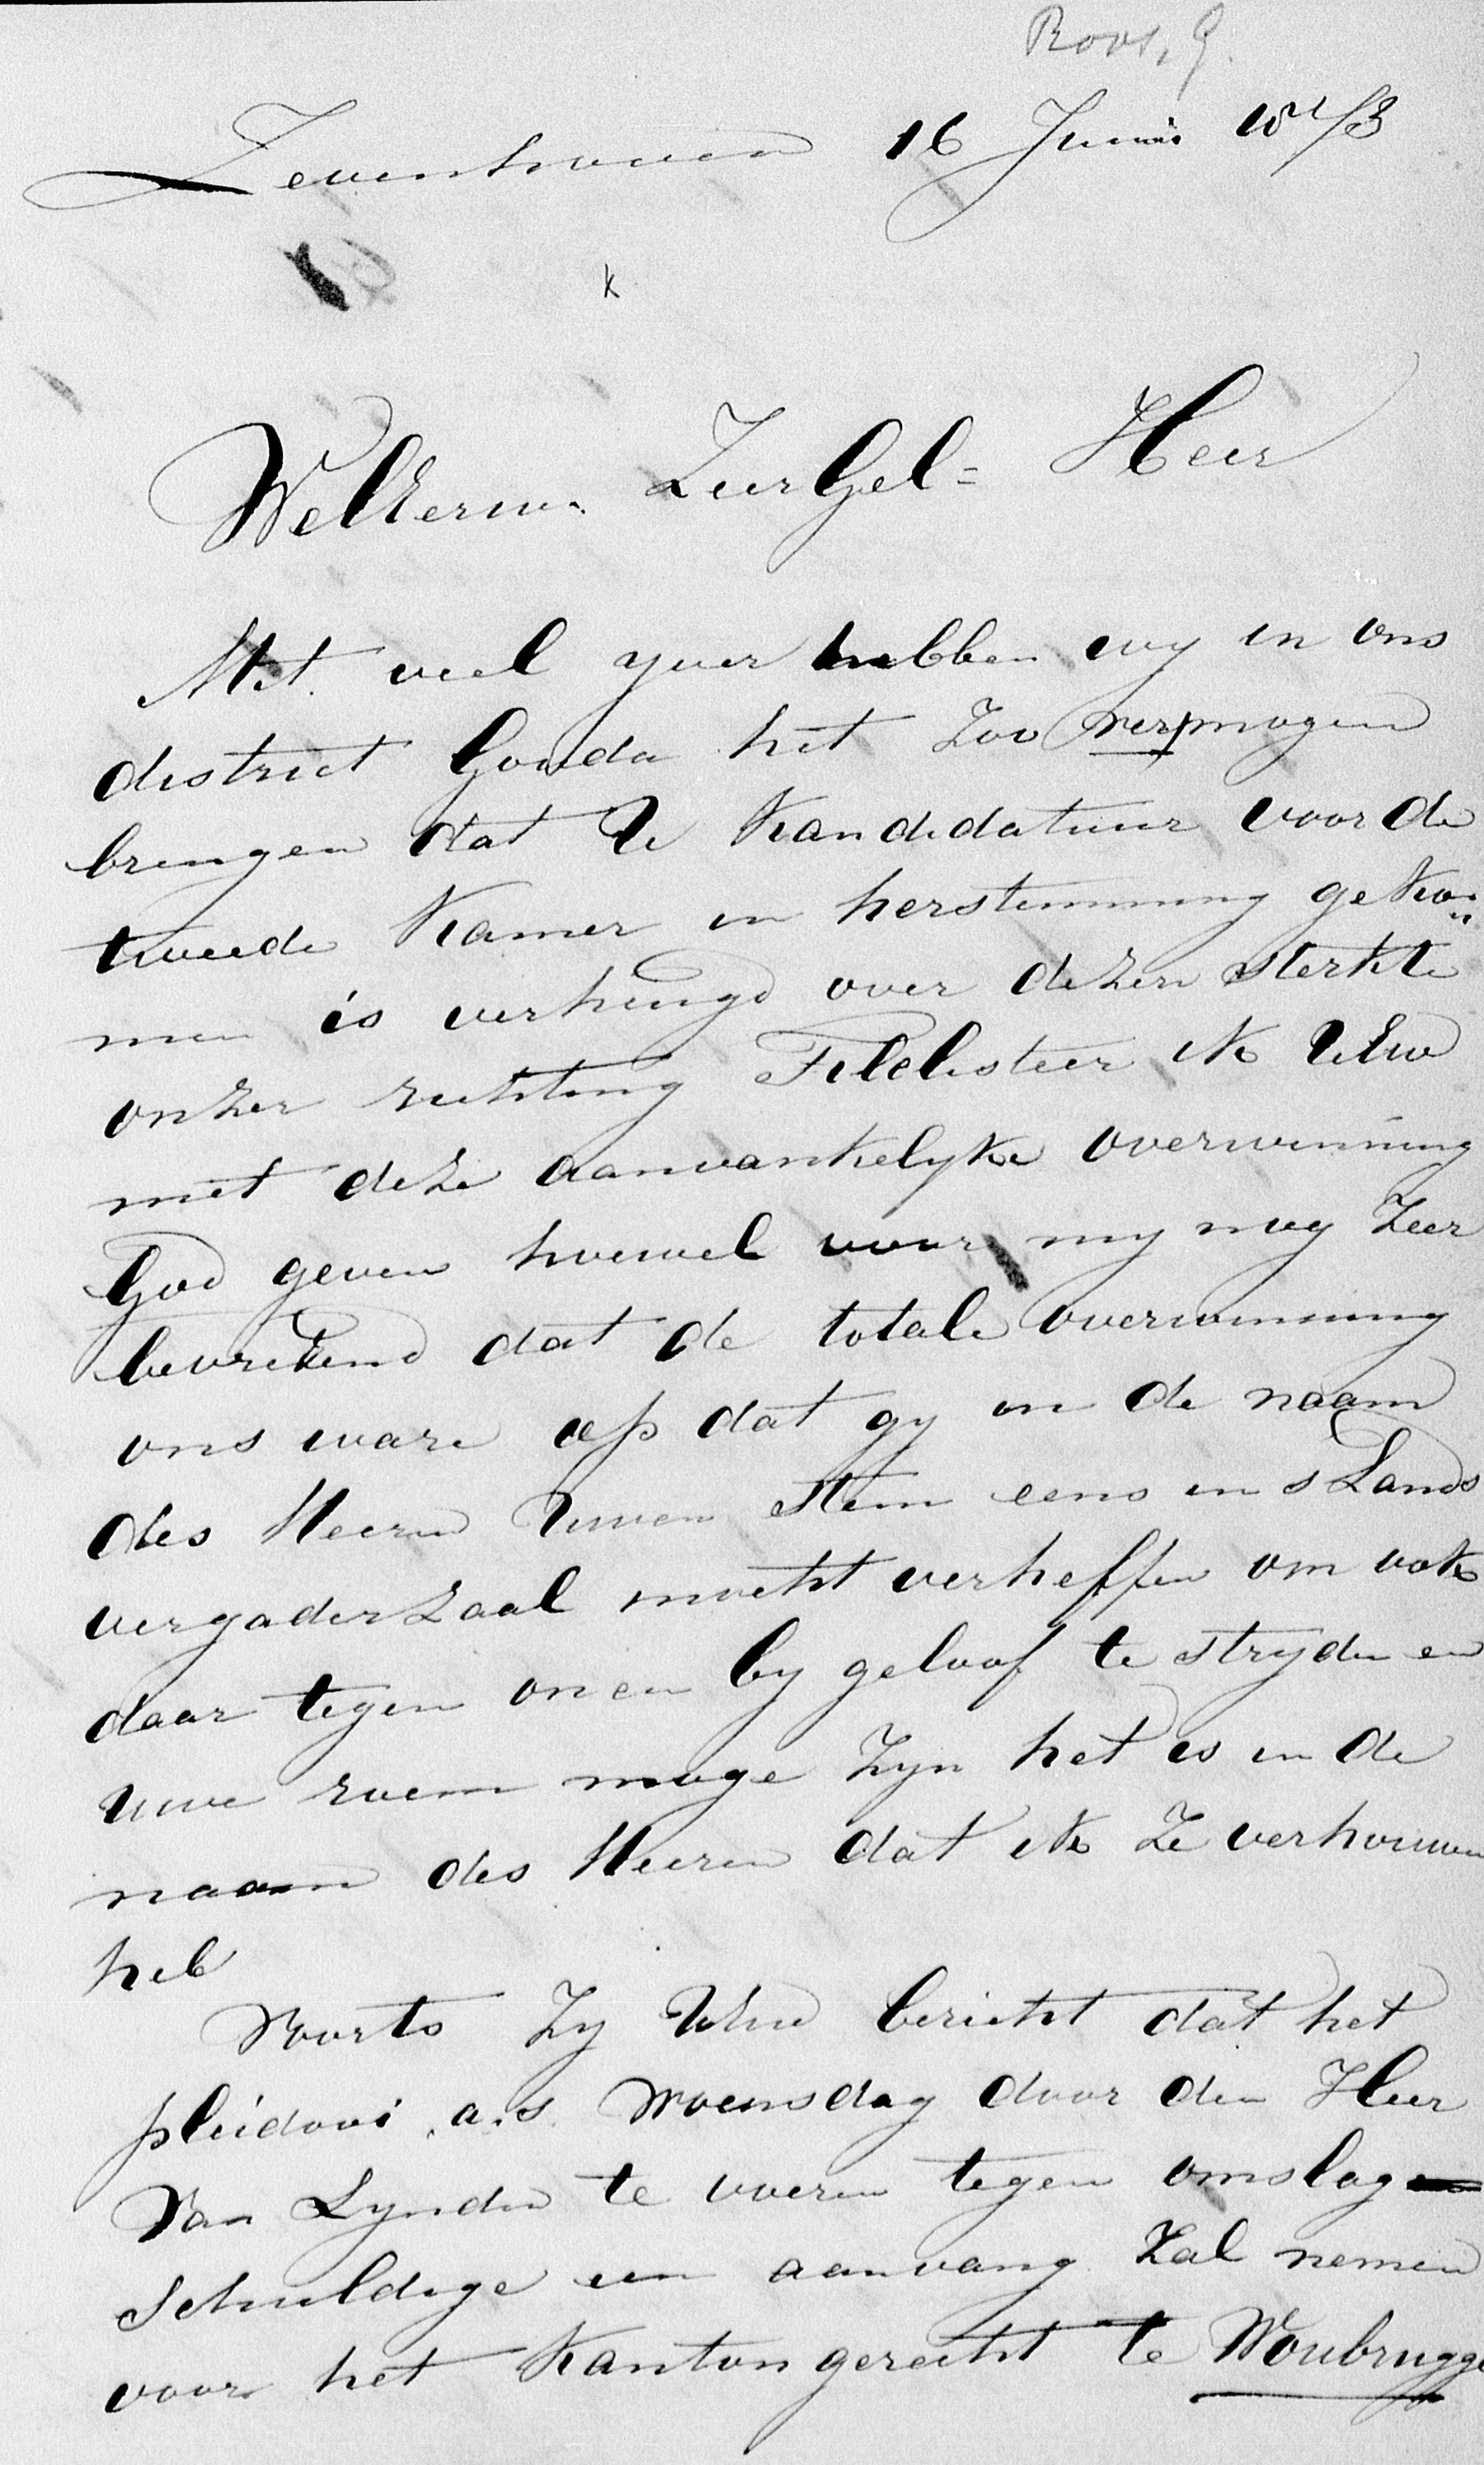 Roos, G.
Zevenhoven 16 Junij 1873
k
WelEerw. ZeerGel= Heer
Met veel yver hebben wy in ons
district Gouda het zoo ver mogen
brengen dat Ue Kandidatuur voor de
tweede Kamer in herstemming geko„
men is verheugd over dezen sterkte
onzer richting Feleliseteer ik UEw
met deze aanvankelyke overwinning
God geven hoewel voor my nog zeer
bevreemd dat de totale overwinning
ons ware op dat gy in de naam
des Heeren Uwen stem eens in s Lands
vergaderzaal mocht verheffen om ook
daar tegen on en by geloof te stryden en
uwe roem moge zyn het is in de
naam des Heeren dat ik ze verhouwen
heb
Voorts zy UEw bericht dat het
pleidooi a.s. Woensdag door den Heer
Van Lynden te voeren tegen omslag
schuldige een aanvang zal nemen
voor het Kantongerecht te Woubrugge